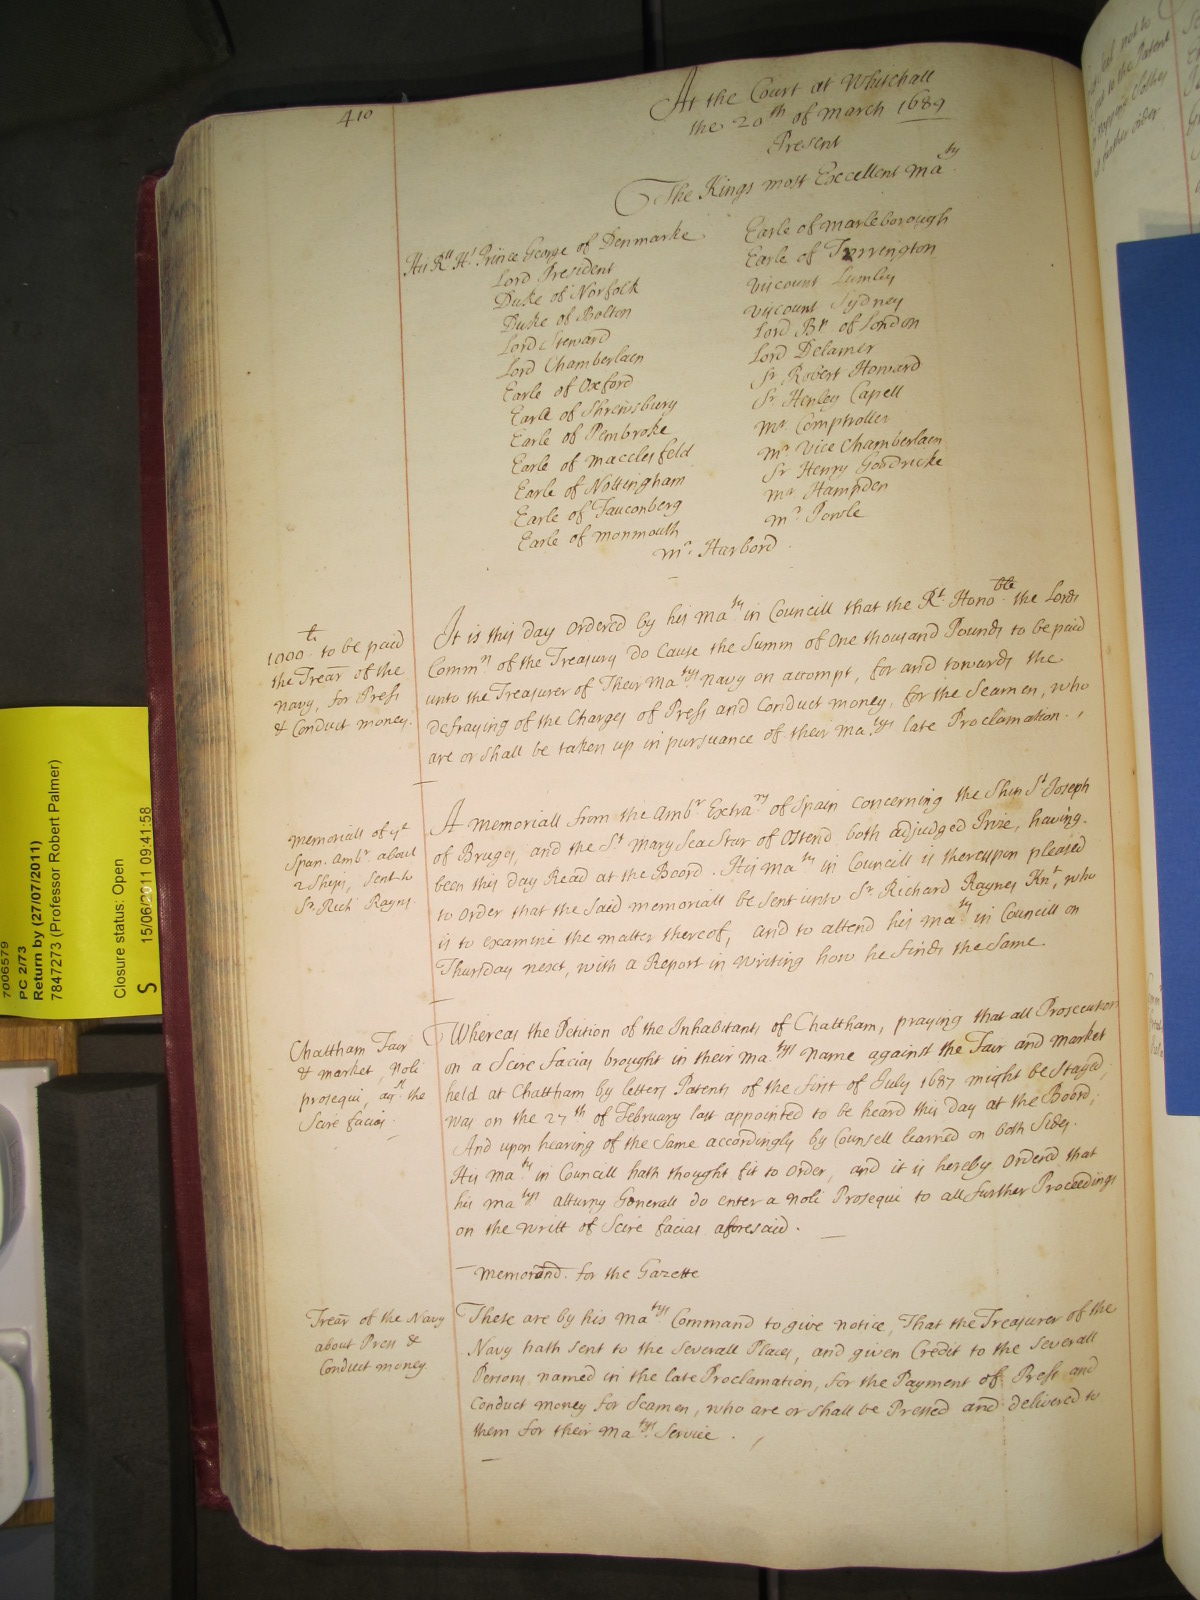 410
At the Court at Whitehall
the 20th of March 1689
Present
The Kings most Excellent Ma.ty
His R.ll H.s Prince George of Denmarke
Lord President
Duke of Norfolk
Duke of Bolton
Lord Steward
Lord Chamberlain
Earle of Oxford
Earle of Shrewsbury
Earle of Pembroke
Earle of Macclesfeld
Earle of Nottingham
Earle of Fauconberg
Earle of Monmouth
Earle of Marleborough
Earle of Torrington
Viscount Lumley
Viscount Sydney
Lord Bp. of London
Lord Delamer
Sr. Robert Howard
Sr. Henley Capell
Mr. Comptroller
Mr. Vice Chamberlain
Sr Henry Goodricke
Mr Hampden
Mr. Powle
Mr. Harbord
1000.li to be paid
the Trear of the
Navy, for Press
& Conduct money.
It is this day Ordered by his Ma.ty in Councill that the Rt. Hono.ble the Lords
Comm.rs of the Treasury do Cause the Summ of One thousand Pounds to be paid
unto the Treasurer of Their Ma.tys Navy on accompt, for and towards the
defraying of the Charges of Press and Conduct money, for the Seamen, who
are or shall be taken up in pursuance of their Ma.tys late Proclamation.
Memoriall of ye
Span. Ambr. about
2 Ships, sent to
Sr. Rich Raynes
A Memoriall from the Ambr Extra.ry of Spain concerning the Ship St Joseph
of Bruges, and the St Mary Sea Star of Ostend both adjudged Prize, having
been this day Read at the Board. His Ma.ty in Councill is thereupon pleased
to Order that the said Memoriall be sent unto Sr. Richard Raynes Knt, who
is to examine the matter thereof, and to attend his Ma.ty in Councill on
Thursday next, with a Report in writing how he finds the same
Chattham Fair
& Market, Noli
prosequi, agst. the
Scire facias.
Whereas the Petition of the Inhabitants of Chattham, praying that all Prosecution
on a Scire Facias brought in their Ma.tys name against the Fair and Market
held at Chattham by letters Patents of the first of July 1687 might be stayed,
was on the 27th of February last appointed to be heard this day at the Board;
And upon hearing of the same accordingly by Counsell learned on both sides.
His Ma.ty in Councill hath thought fit to order, and it is hereby Ordered that
his Ma.tys Atturny Generall do enter a Noli Prosequi to all further Proceedings
on the Writt of Scire facias aforesaid.
Memorand. for the Gazette
Trear of the Navy
about Press &
Conduct money.
These are by his Ma.tys Command to give notice, That the Treasurer of the
Navy hath sent to the severall Places, and given Credit to the severall
Persons named in the late Proclamation, for the Payment of Press and
Conduct money for Seamen, who are or shall be Pressed and delivered to
them for their Ma.tys Service.
7006579
PC 2/73
Return by (27/07/2011)
7847273 (Professor Robert Palmer)
Closure status: Open
S 15/06/2011 09:41:58